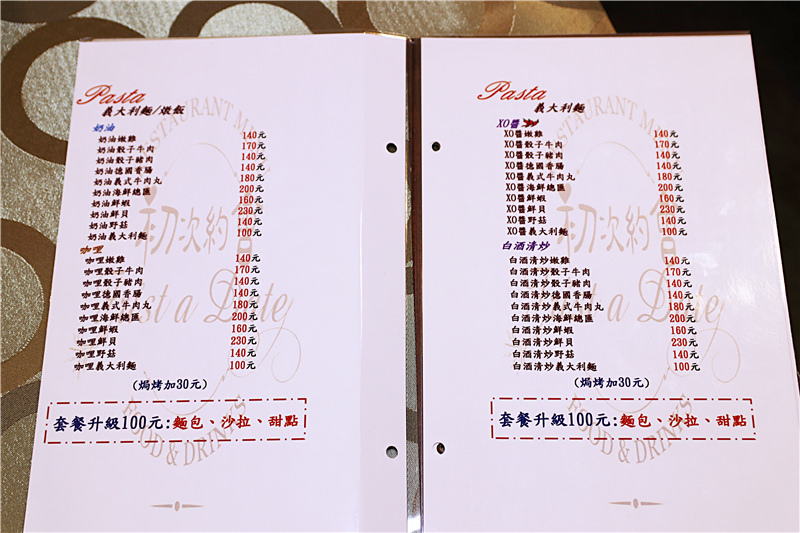 Pasta
義大利麵/燉飯
奶油
奶油嫩雞 140元
奶油骰子牛肉 170元
奶油骰子豬肉 140元
奶油德國香腸 140元
奶油義式牛肉丸 180元
奶油海鮮總匯 200元
奶油鮮蝦 160元
奶油鮮貝 230元
奶油野菇 140元
奶油義大利麵 100元
咖哩
咖哩嫩雞 140元
咖哩骰子牛肉 170元
咖哩骰子豬肉 140元
咖哩德國香腸 140元
咖哩義式牛肉丸 180元
咖哩海鮮總匯 200元
咖哩鮮蝦 160元
咖哩鮮貝 230元
咖哩野菇 140元
咖哩義大利麵 100元
(焗烤加30元)
套餐升級100元:麵包、沙拉、甜點
初次約
st a Date
FOOD & DRINKS
Pasta
義大利麵
XO醬
XO醬嫩雞 140元
XO醬骰子牛肉 170元
XO醬骰子豬肉 140元
XO醬德國香腸 140元
XO醬義式牛肉丸 180元
XO醬海鮮總匯 200元
XO醬鮮蝦 160元
XO醬鮮貝 230元
XO醬野菇 140元
XO醬義大利麵 100元
白酒清炒
白酒清炒嫩雞 140元
白酒清炒骰子牛肉 170元
白酒清炒骰子豬肉 140元
白酒清炒德國香腸 140元
白酒清炒義式牛肉丸 180元
白酒清炒海鮮總匯 200元
白酒清炒鮮蝦 160元
白酒清炒鮮貝 230元
白酒清炒野菇 140元
白酒清炒義大利麵 100元
(焗烤加30元)
套餐升級100元:麵包、沙拉、甜點
初次約會
st a Date
FOOD & DRINKS